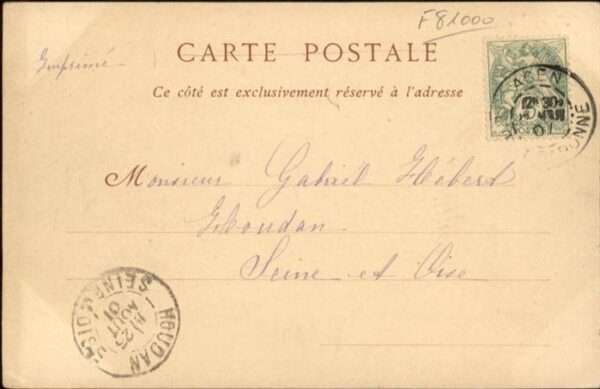 F81000
Imprimé
CARTE POSTALE
Ce côté est exclusivement réservé à l'adresse
AGEN
12E 30
01
GARONNE
Monsieur Gabriel Hébert
Houdan
Seine et Oise
HOUDAN
SEINE-&-OISE
23
AOUT
01